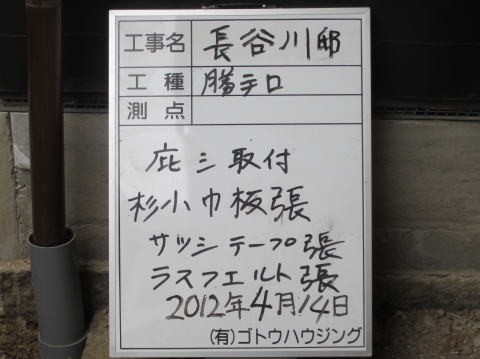 工事名 長谷川邸
工種 勝手口
測点
庇ミ取付
杉小巾板張
サッシテープ張
ラスフェルト張
2012年4月14日
(有)ゴトウハウジング